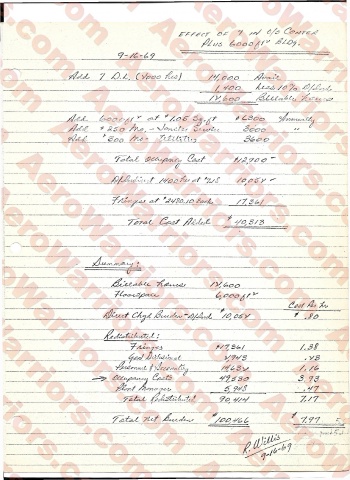 EFFECT OF 7 IN C/O CENTER
PLUS 6000 FT² BLDG.
9-16-69
Add 7 D.L. (2000 hrs) 14,000 Avail.
1,400 Less 10%
12,600 Billable Hours
Add 6000 ft² at $1.05 Sq. ft $6300 Annually
Add $250 Mo. - Service 3000 "
Add $300 Mo - Utilities 3600
Total Occupancy Cost $12,900
1400 hrs at 10,052
Fringes at $2480.10 each 17,361
Total Cost Added $40,313
Summary:
Billable hours 12,600
Floorspace 6,000 ft²
Cost Per hr
Direct Chgd Burden 10,052 $ .80
Redistributed:
Fringes $17,361 1.38
Gen'l Divisional 2,943 .23
Personnel & Security 14,632 1.16
→ Occupancy Costs 49,530 3.93
Plant Managers 5,948 .47
Total Redistributed 90,414 7.17
Total Net Burden $100,466 $7.97
R. Willis
9-16-69
AeroWarriors.com